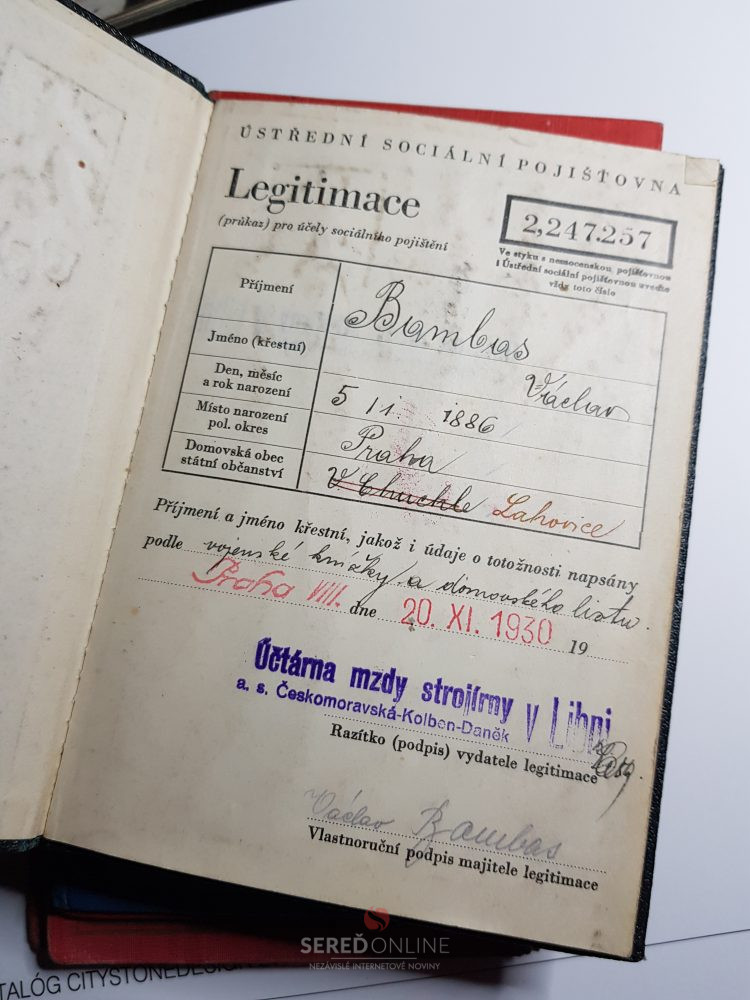 ÚSTŘEDNÍ SOCIÁLNÍ POJIŠŤOVNA
Legitimace
(průkaz) pro účely sociálního pojištění
2,247.257
Ve styku s nemocenskou pojišťovnou
i Ústřední sociální pojišťovnou uveďte
vždy toto číslo
Příjmení
Bambas
Jméno (křestní)
Václav
Den, měsíc
a rok narození
5/1. 1886
Místo narození
pol. okres
Praha
Domovská obec
státní občanství
V Chuchle Lahovice
Příjmení a jméno křestní, jakož i údaje o totožnosti napsány
podle vojenské knížky a domovského listu.
Praha VIII. dne 20. XI. 1930 19
Účtárna mzdy strojírny v Libni
a. s. Českomoravská-Kolben-Daněk
Razítko (podpis) vydatele legitimace
Václav Bambas
Vlastnoruční podpis majitele legitimace
SEREĎONLINE
NEZÁVISLÉ INTERNETOVÉ NOVINY
TALÓG CITYSTONEDESIGN